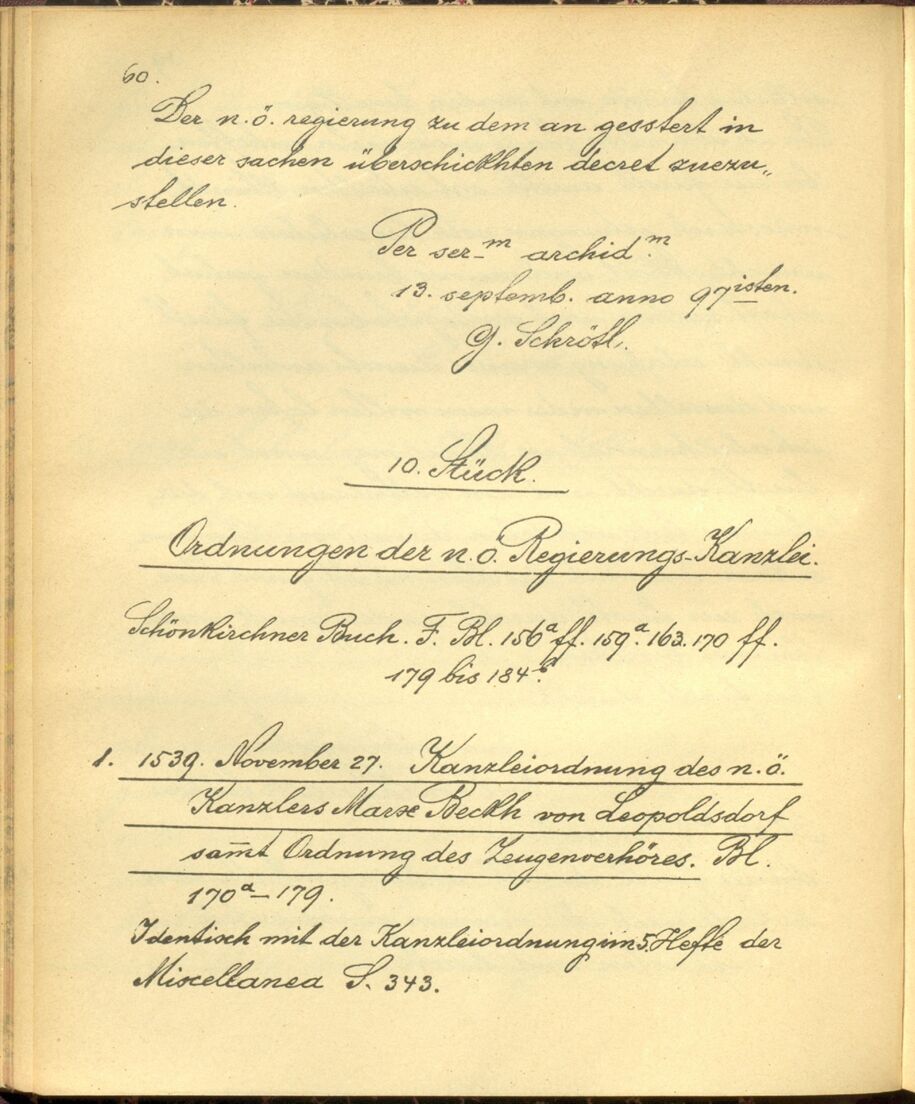 60.
Der n. ö. regierung zu dem an gesstert in
dieser sachen überschickhten decret zuezu„
stellen.
Per ser_m archid.m
13. septemb. anno 97isten.
G. Schrötl.
10. Stück.
Ordnungen der n. ö. Regierungs-Kanzlei.
Schönkirchner Buch. F. Bl. 156a ff. 159a. 163. 170 ff.
179 bis 184b.
1. 1539. November 27. Kanzleiordnung des n. ö.
Kanzlers Marx Beckh von Leopoldsdorf
sam̅t Ordnung des Zeugenverhöres. Bl.
170a – 179.
Identisch mit der Kanzleiordnung im 5. Hefte der
Miscellanea S. 343.